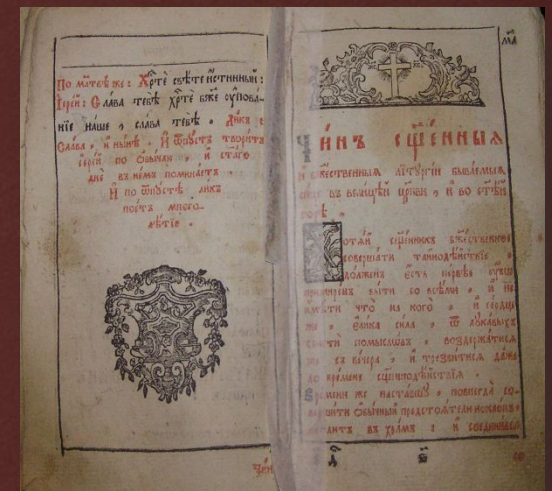 По мл҃твѣ же : Хрⷭ҇тѐ свѣте и҆стинный :
І҆ерей : Слава тебѣ̀ Хрⷭ҇тѐ бж҃е ᲂу҆пова-
нїе наше , слава тебѣ̀ . Ликъ :
Слава . и҆ нынѣ . И҆ ѿпустъ творитъ
і҆ерей по ѡ҆бычаю . и҆ ст҃аго
дне въ немъ поминаетъ .
И҆ по ѿпустѣ ликъ
поетъ много-
лѣтїе .
Чин
м҃а
чи́нъ сщ҃е́нныѧ
и҆ бжⷭ҇твенныѧ лїтꙋргїи бываемыѧ
въ велицѣй цр҃кви , и҆ во ст҃ѣй
горѣ .
Хотѧй сщ҃енникъ бжⷭ҇твенное
совершати тайнодѣйствїе ,
долженъ є҆сть первѣе ᲂу҆бѡ
примиренъ быти со всѣми , и҆ не
имѣти что на кого , и҆ сердце
же , є҆лика сила , ѿ лꙋкавыхъ
блюсти помыслѡвъ , воздержатисѧ
же съ вечера , и҆ трезвитисѧ даже
до времене сщ҃еннодѣйствїѧ .
Времени же наставшꙋ , повнегда со-
творити ѡ҆бычный предстоѧтелю поклонъ ,
входитъ въ храмъ : и҆ соединивсѧ